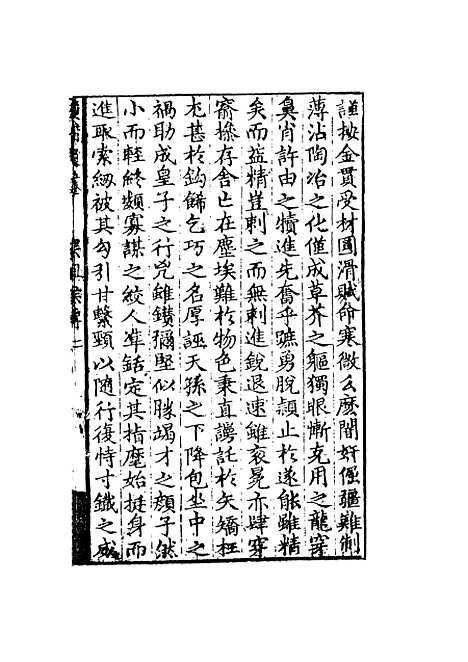 謹按金貫受材圓滑賦命寒微么麽闇奸倔彊難制
薄沾陶冶之化僅成草芥之軀獨眼慚克用之龍穿
鼻肖許由之犢進先奮乎蹠勇脫頴止於遂能雖精
矣而益精豈刺之而無刺進銳退速雖袞冕亦肆穿
窬掺存舍亡在塵埃難於物色秉直謗託於矢矯枉
尨甚於鈎餙乞巧之名厚誣天孫之下降包坐中之
禍助成皇子之行兇雖鑚彌堅似勝竭才之顔子然
小而輕終類寡謀之絞人犂銛定其指麾始挺身而
進聚索綴被其勾引甘繫頸以随行復恃寸鐵之威